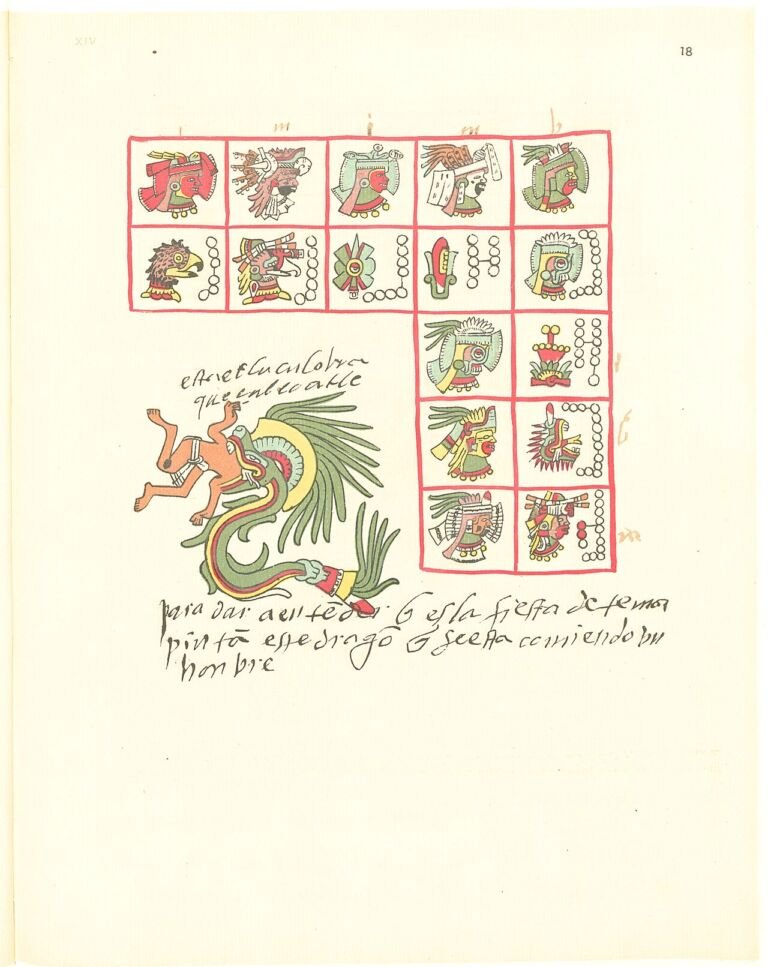 XIV
18
m i m b
este es la culobra
que
para dar a entēder q̄ es la fiesta de temor
pintā este dragō q̄ se esta comiendo un
honbre
m